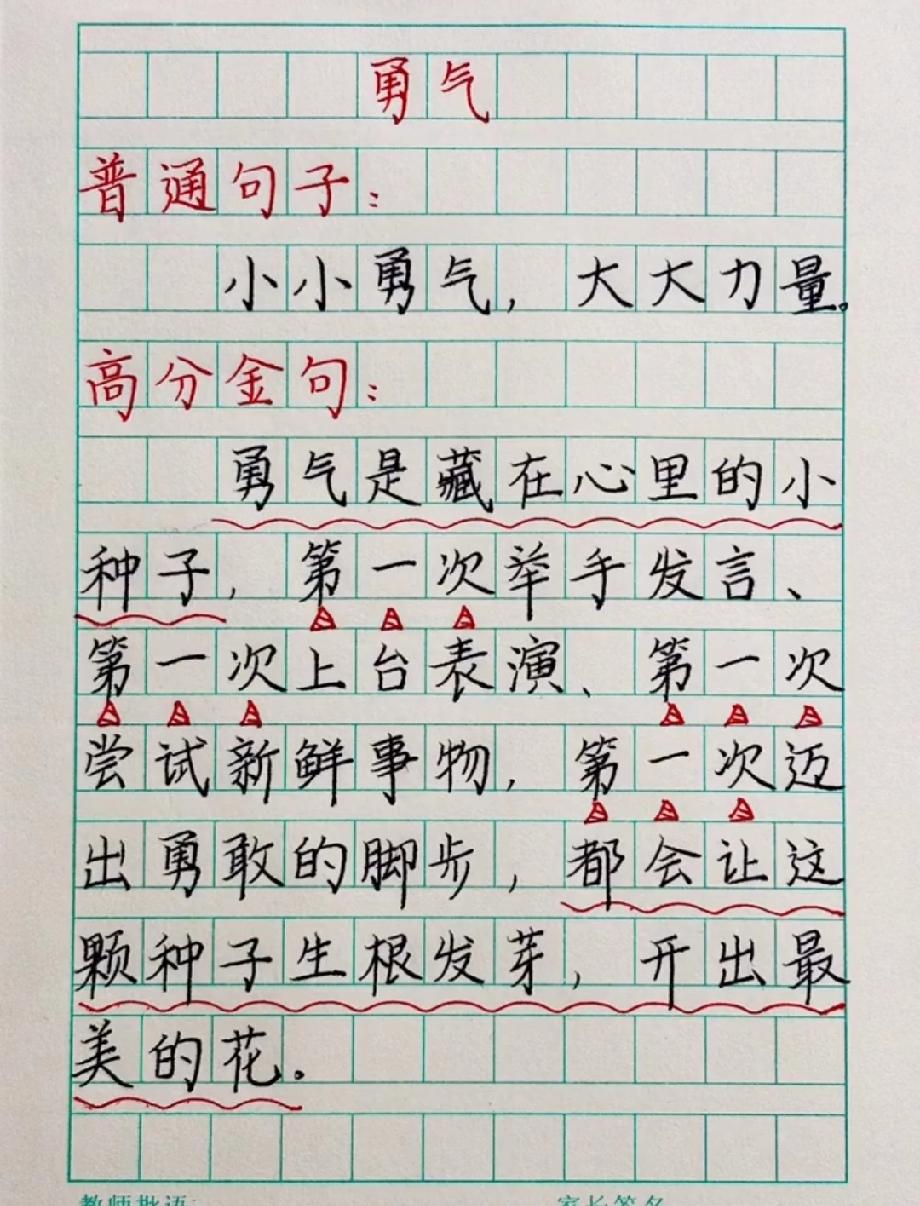 勇气
普通句子：
小小勇气，大大力量。
高分金句：
勇气是藏在心里的小
种子，第一次举手发言、
第一次上台表演、第一次
尝试新鲜事物，第一次迈
出勇敢的脚步，都会让这
颗种子生根发芽，开出最
美的花。
教师批语: 家长签名